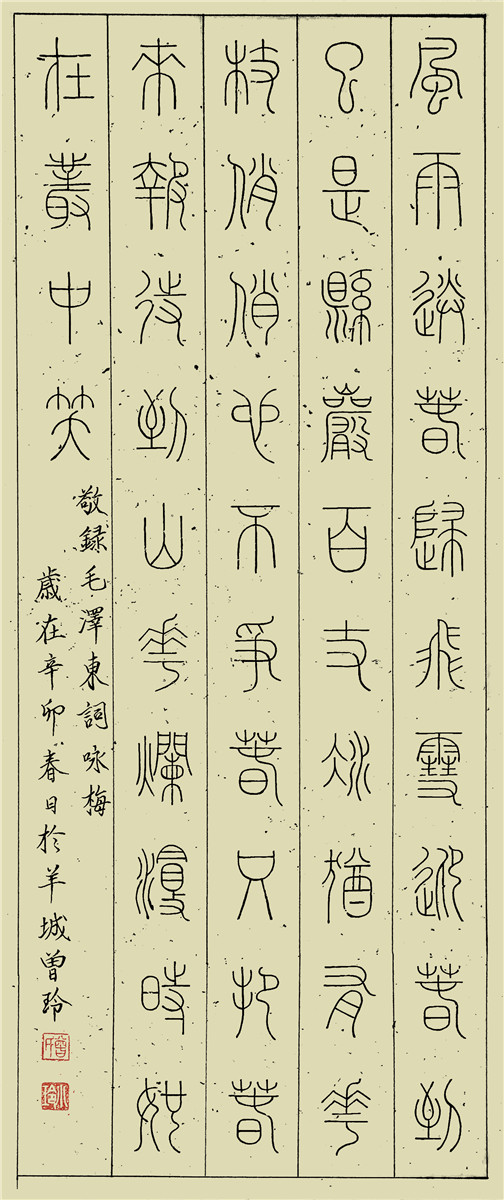 風雨送春歸飛雪迎春到
已是縣巖百丈冰猶有花
枝俏俏也不爭春只把春
來報待到山花爛漫時她
在叢中笑
敬録毛澤東詞咏梅
歲在辛卯春日於羊城曾玲